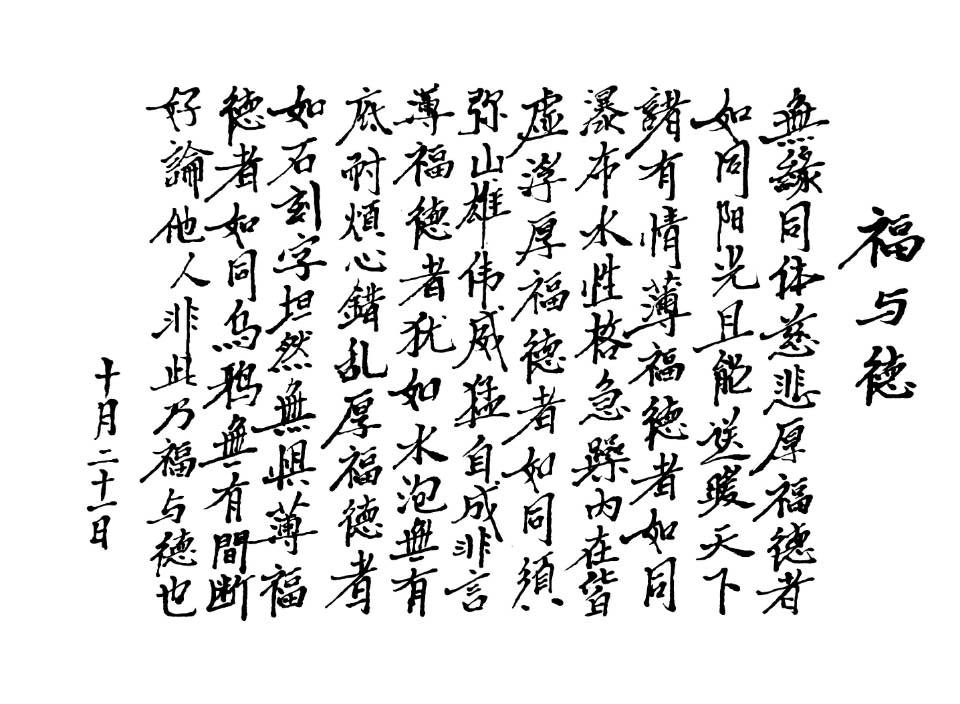 福与德
無緣同体慈悲厚福德者
如同阳光且能送暖天下
諸有情薄福德者如同
瀑布水性格急躁内在皆
虚浮厚福德者如同須
弥山雄伟威猛自成非言
薄福德者犹如水泡無有
底耐煩心錯乱厚福德者
如石刻字坦然無惧薄福
德者如同乌鸦無有間断
好論他人非此乃福与德也
十月二十一日